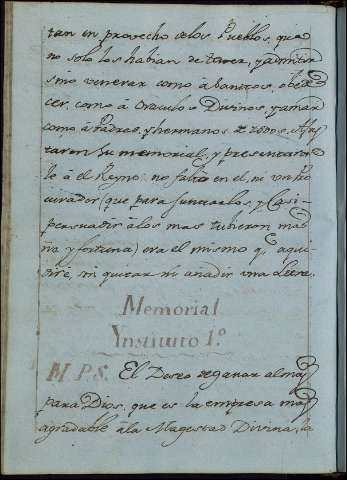 tan en provecho de los Pueblos, que
no solo los habian de tener, y admitir
smo venerar como à Santos, obede
cer, como à Oraculos Divinos, y amar
como à Padres, y hermanos de todos.
taron su memorial, y presentaron
le à el Reyno: no faltò en el, ni un Pro
curador (que para juntarlos, y Casi
persuadir à los mas tubieron ma
ña y fortuna) era el mismo q.e aqui
diré, sin quitar ni añadir una Letra.
Memorial
Ynstituto 1.º
M. P. S. El Deseo de ganar almas
para Dios, que es la empresa mas
agradable à la Magestad Divina, la